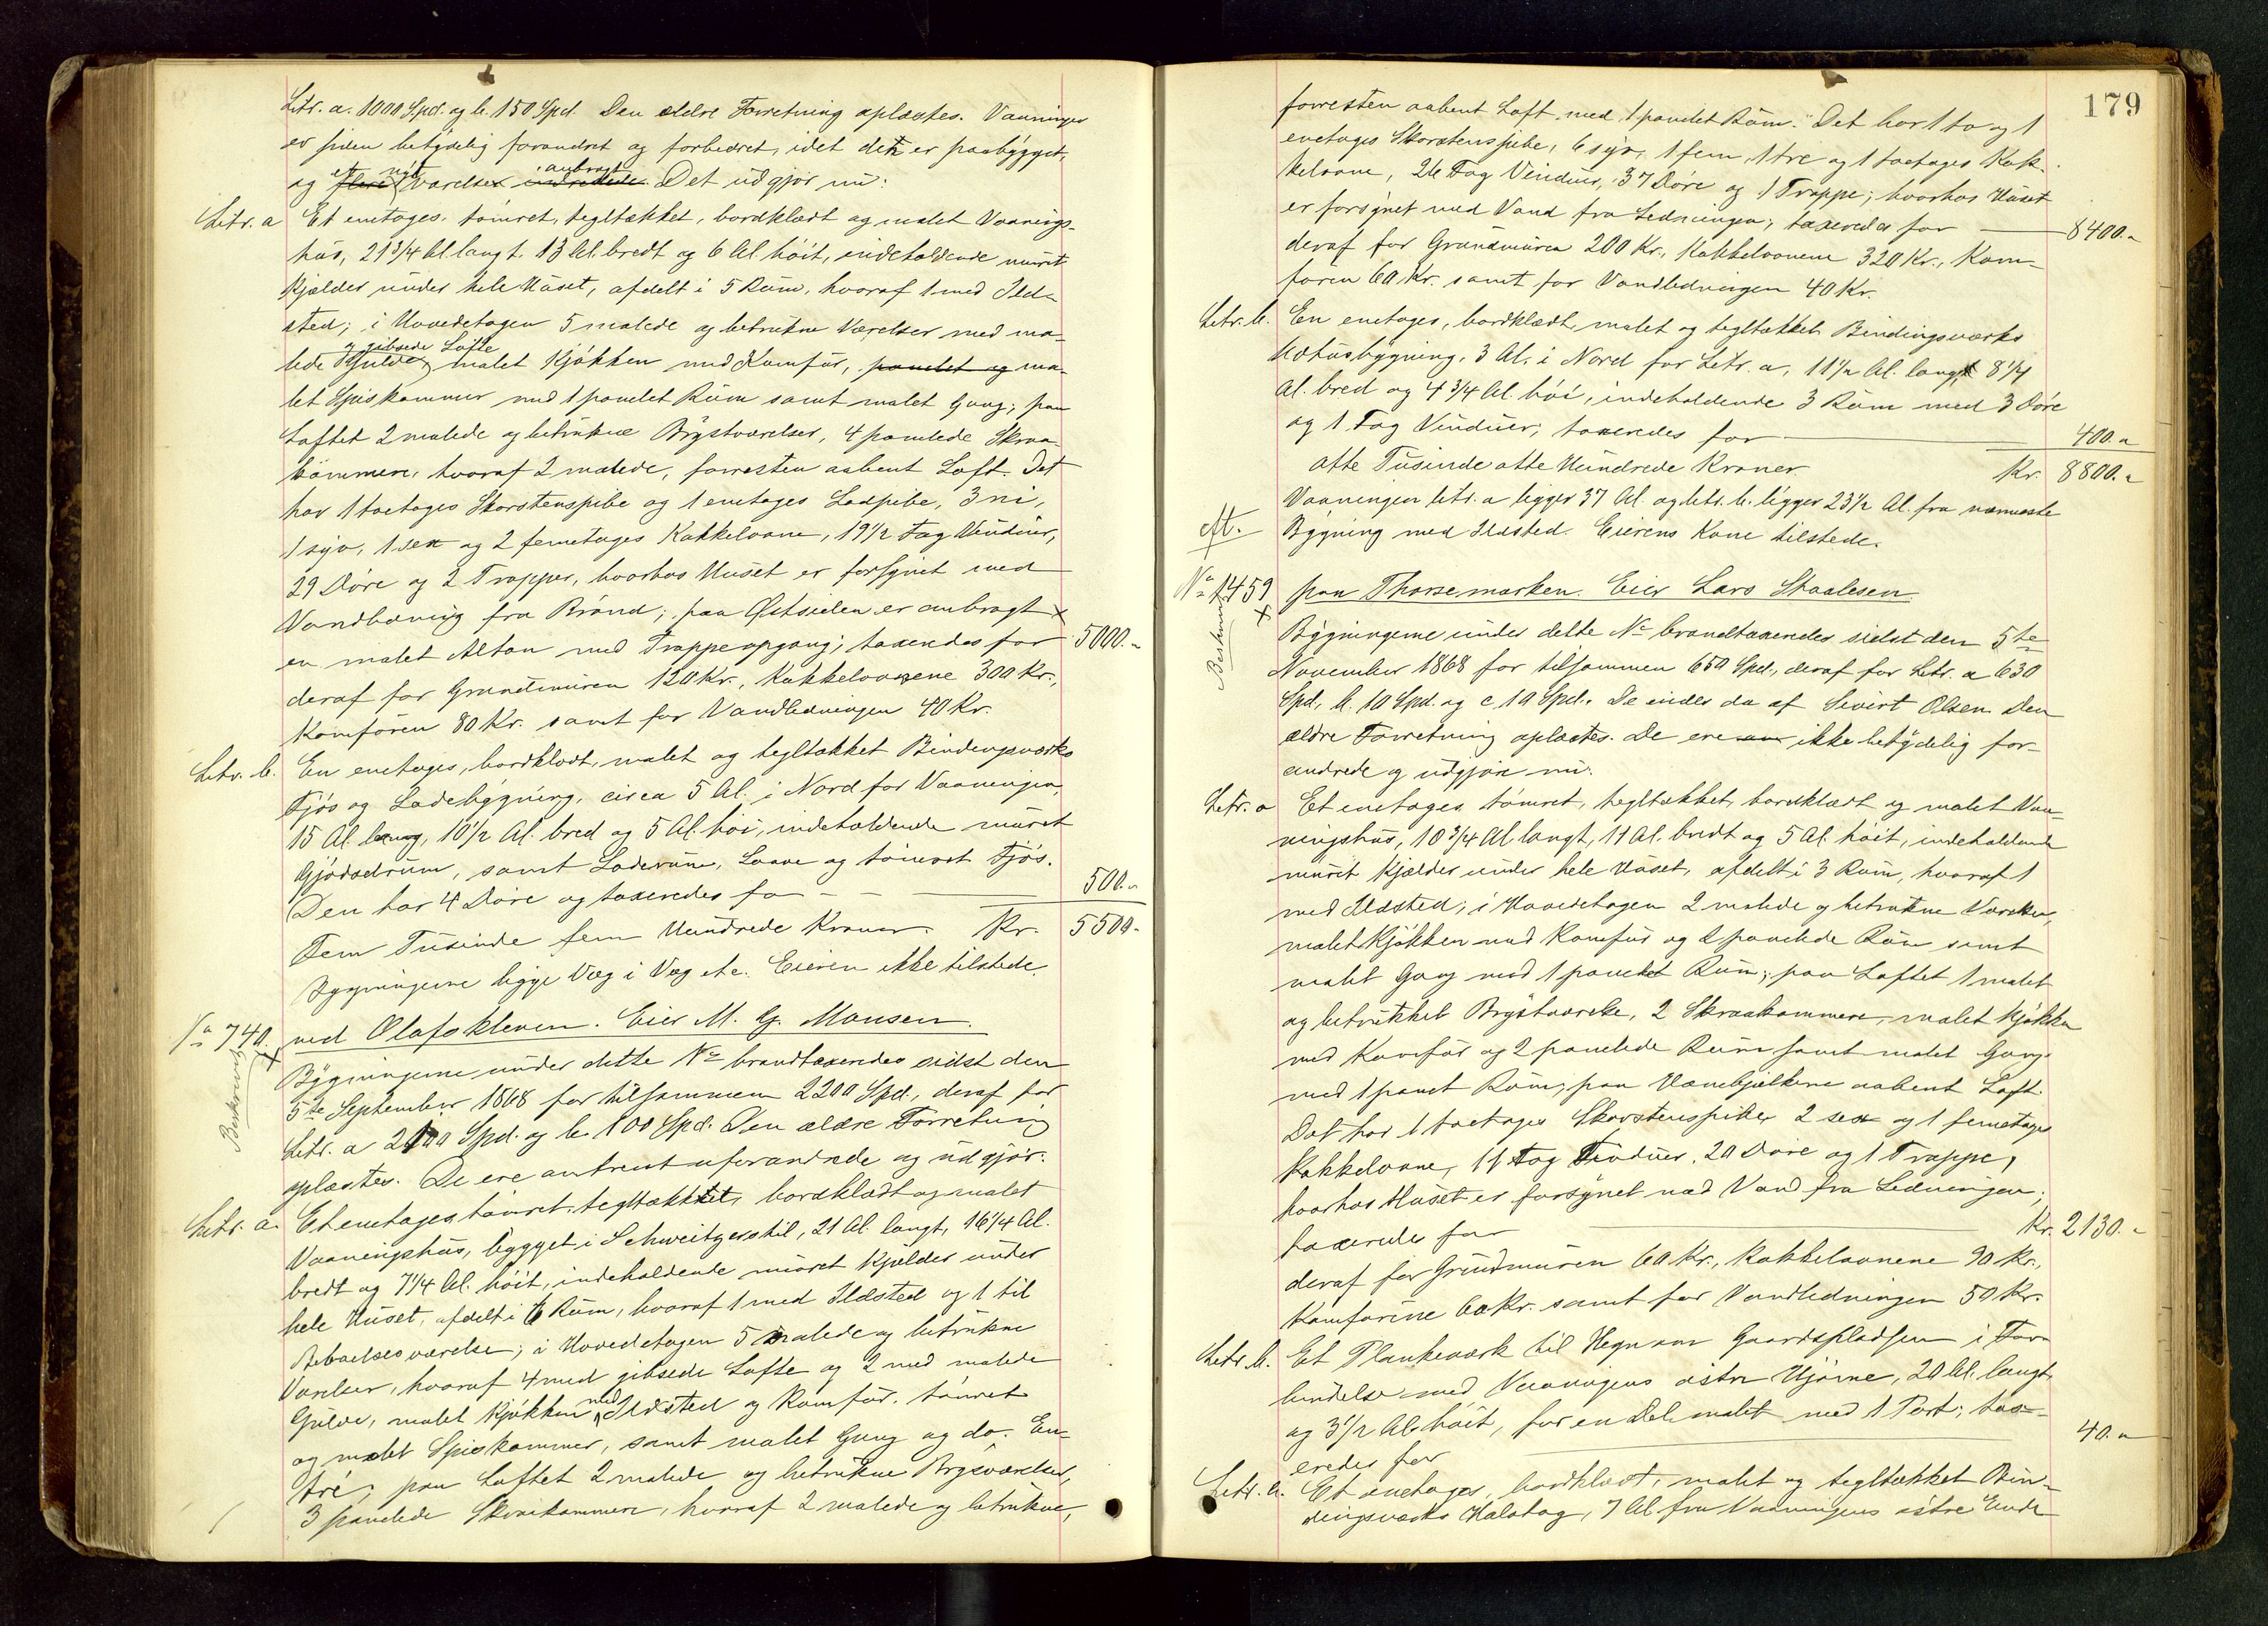 Litr. a. 1000 Spd. og b. 150 Spd. Den ældre Forretning oplæstes. Vaaningen
er siden betydelig forandret og forbedret, idet den er paabygget,
og et nyt Værelse anbragt. Det udgjør nu:
Litr. a Et enetages, tømret, tegltækket, bordklædt og malet Vaanings-
hus, 21 3/4 Al. langt, 13 Al. bredt og 6 Al. høit, indeholdende muret
Kjælder under hele Huset, afdelt i 5 Rum, hvoraf 1 med Ild-
sted; i Hovedetagen 5 malede og betrukne Værelser med ma-
lede Gulve og gibsede Lofte, malet Kjøkken med Komfur, panelet og ma-
let Spiskammer med 1 panelet Rum samt malet Gang; paa
Loftet 2 malede og betrukne Brystværelser, 4 panelede Skraa-
kammere, hvoraf 2 malede, forresten aabent Loft. Det
har 1 toetages Skorstenspibe og 1 enetages Ladpibe, 3 ni,
1 syv, 1 sex og 2 femetages Kakkelovne, 19 1/2 Fag Vinduer,
29 Døre og 2 Trapper, hvorhos Huset er forsynet med
Vandledning fra Brønd; paa Østsiden er anbragt
en malet Altan med Trappeopgang; taxeredes for 5000.-
deraf for Grundmuren 120 Kr., Kakkelovnene 300 Kr.,
Komfuren 80 Kr. samt for Vandledningen 40 Kr.
Litr. b. En enetages, bordklædt, malet og tegltækket Bindingsværks
Fjøs og Ladebygning, circa 5 Al. i Nord for Vaaningen,
15 Al. lang, 10 1/2 Al. bred og 5 Al. høi, indeholdende muret
Gjødselrum, samt Laderum, Laave og tømret Fjøs.
Den har 4 Døre og taxeredes for 500.-
Fem Tusinde fem Hundrede Kroner. Kr. 5500.-
Bygningerne ligge Væg i Væg etc. Eieren ikke tilstede
No 740. ved Olafskleven. Eier M. G. Monsen.
Beskrevet
Bygningerne under dette No brandtaxeredes sidst den
5te September 1868 for tilsammen 2200 Spd., deraf for
Litr. a 2100 Spd. og b. 100 Spd. Den ældre Forretning
oplæstes. De ere omtrent uforandrede og udgjør:
Litr. a. Et enetages, tømret, tegltækket, bordklædt og malet
Vaaningshus, bygget i Schweitzerstil, 21 Al. langt, 16 1/4 Al.
bredt og 7 1/4 Al. høit, indeholdende muret Kjælder under
hele Huset, afdelt i 6 Rum, hvoraf 1 med Ildsted og 1 til
Beboelsesværelse; i Hovedetagen 5 malede og betrukne
Værelser, hvoraf 4 med gibsede Lofte og 2 med malede
Gulve, malet Kjøkken med Ildsted og Komfur, tømret
og malet Spiskammer, samt malet Gang og do. En-
tré; paa Loftet 2 malede og betrukne Brystværelser,
3 panelede Skraakammere, hvoraf 2 malede og betrukne,
179
forresten aabent Loft, med 1 panelet Rum. Det har 1 to og 1
enetages Skorstenspibe, 6 syv, 1 fem, 1 tre og 1 toetages Kak-
kelovne, 26 Fag Vinduer, 37 Døre og 1 Trappe; hvorhos Huset
er forsynet med Vand fra Ledningen; taxeredes for 8400.-
deraf for Grundmuren 200 Kr., Kakkelovnene 320 Kr., Kom-
furen 60 Kr. samt for Vandledningen 40 Kr.
Litr. b. En enetages, bordklædt, malet og tegltækket Bindingsværks
Udhusbygning, 3 Al. i Nord for Litr. a, 11 1/2 Al. lang, 8 1/4
Al. bred og 4 3/4 Al. høi, indeholdende 3 Rum med 3 Døre
og 1 Fag Vinduer; taxeredes for 400.-
Otte Tusinde otte Hundrede Kroner Kr. 8800.-
Vaaningen Litr. a ligger 37 Al. og Litr. b. ligger 23 1/2 Al. fra nærmeste
Bygning med Ildsted. Eierens Kone tilstede.
No 1459 paa Thorsemarken. Eier Lars Staalesen
Beskrevet
Bygningerne under dette No brandtaxeredes sidst den 5te
November 1868 for tilsammen 650 Spd., deraf for Litr. a 630
Spd., b. 10 Spd. og c. 10 Spd. De eiedes da af Sivert Olsen. Den
ældre Forretning oplæstes. De ere ikke betydelig for-
andrede og udgjør nu:
Litr. a Et enetages, tømret, tegltækket, bordklædt og malet Vaa-
ningshus, 10 3/4 Al. langt, 11 Al. bredt og 5 Al. høit, indeholdende
muret Kjælder under hele Huset, afdelt i 3 Rum, hvoraf 1
med Ildsted; i Hovedetagen 2 malede og betrukne Værelser,
malet Kjøkken med Komfur og 2 panelede Rum samt
malet Gang med 1 panelet Rum; paa Loftet 1 malet
og betrukket Brystværelse, 2 Skraakammere, malet Kjøkken
med Komfur og 2 panelede Rum samt malet Gang
med 1 panelt Rum; paa Hanebjælkerne aabent Loft.
Det har 1 toetages Skorstenspibe, 2 sex og 1 femetages
Kakkelovne, 11 Fag Vinduer, 20 Døre og 1 Trappe,
hvorhos Huset er forsynet med Vand fra Ledningen;
taxeredes for Kr. 2130.-
deraf for Grundmuren 60 Kr., Kakkelovnene 90 Kr.,
Komfurene 60 Kr. samt for Vandledningen 50 Kr.
Litr. b. Et Plankeværk til Hegn om Gaardspladsen i For-
bindelse med Vaaningens østre Hjørne, 20 Al. langt,
og 3 1/2 Al. høit, for en Del malet med 1 Port; tax-
eredes for 40.-
Litr. c. Et enetages, bordklædt, malet og tegltækket Bin-
dingsværks Halvtag, 7 Al. fra Vaaningens østre Ende